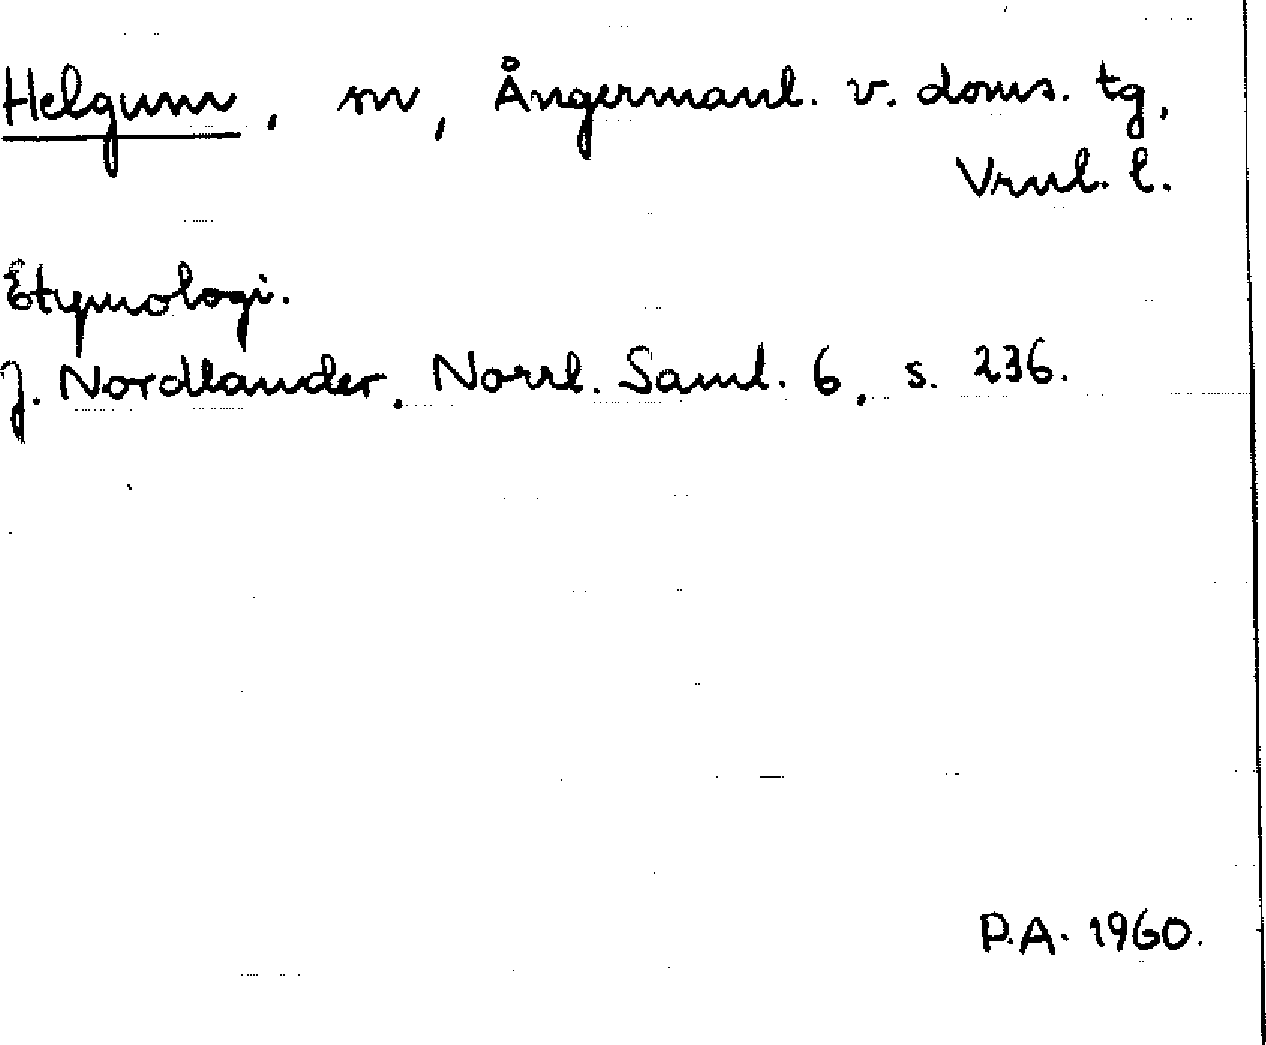 Helgum, sn, Ångermanl. v. doms. tg,
Vrnl. l.
Etymologi.
J. Nordlander, Norrl. Saml. 6, s. 236.
P.A. 1960.